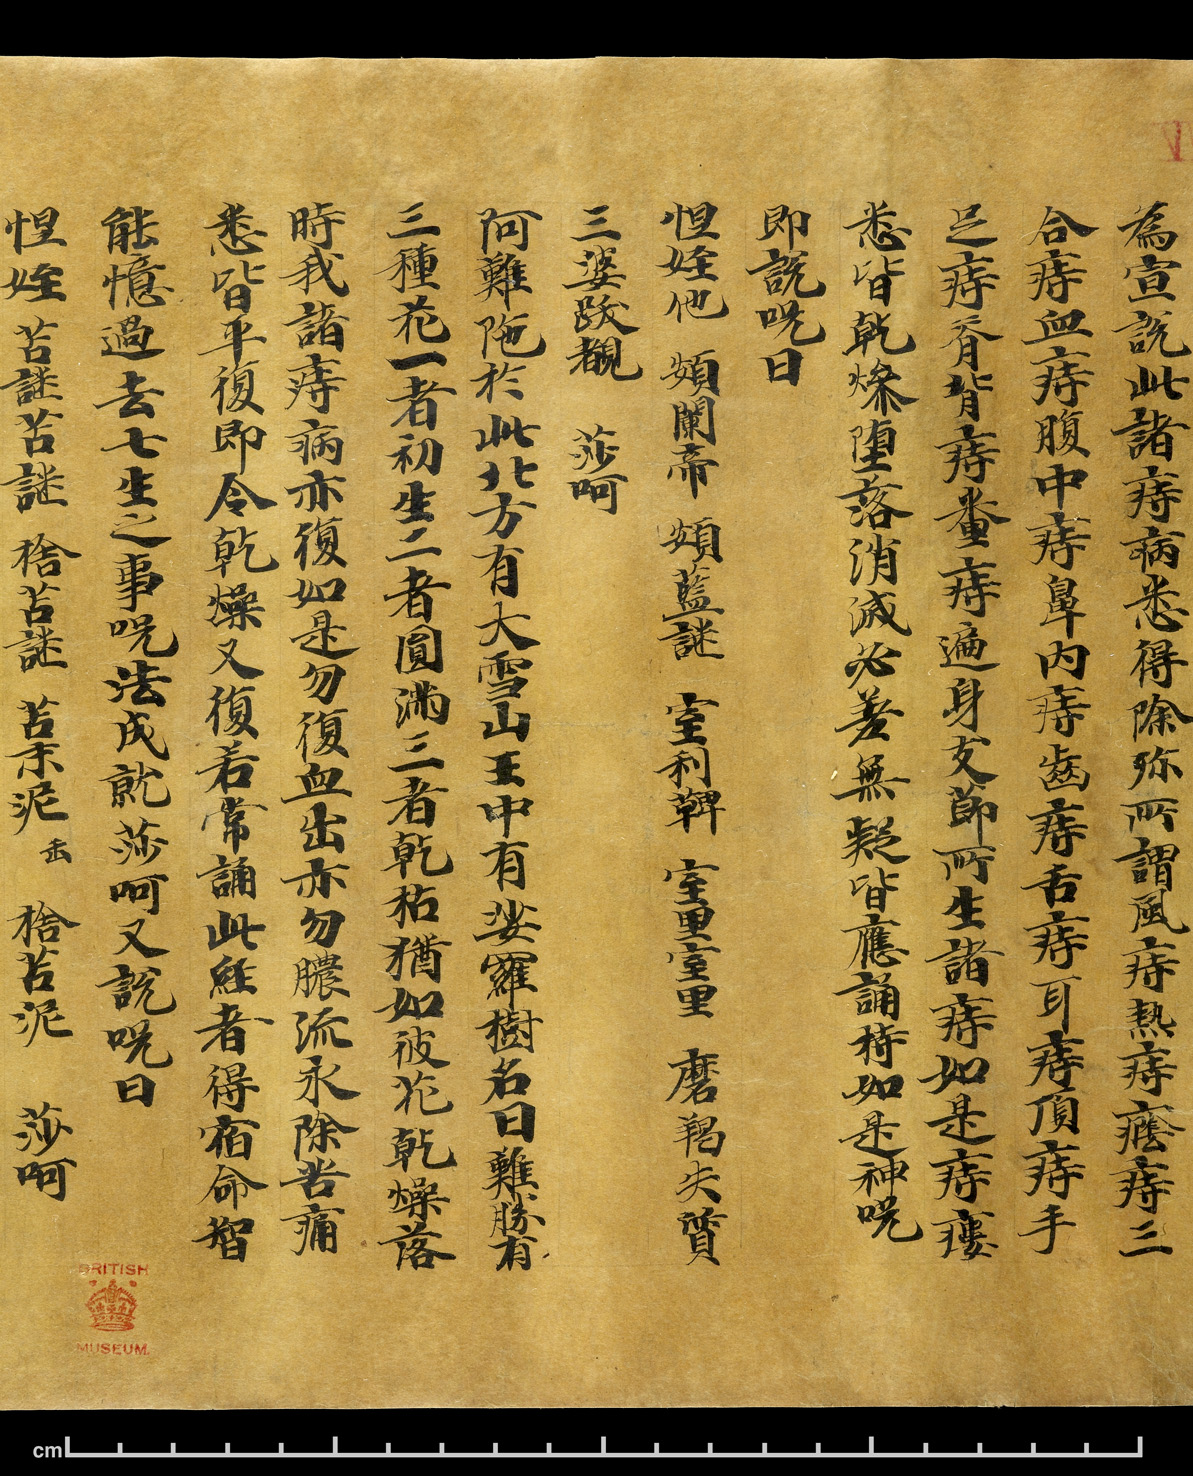 為宣說此諸痔病悉得除弥所謂風痔熱痔癊痔三
合痔血痔腹中痔鼻內痔齒痔舌痔耳痔頂痔手
足痔脊背痔糞痔遍身支節所生諸痔如是痔瘻
悉皆乾燥墮落消滅必差無疑皆應誦持如是神呪
即說呪曰
怛姪他 頞闌帝 頞藍謎 室利鞞 室里室里 磨羯失質
三婆跋覩 莎呵
阿難陁於此北方有大雪山王中有娑羅樹名曰難勝有
三種花一者初生二者圓滿三者乾枯猶如彼花乾燥落
時我諸痔病亦復如是勿復血出亦勿膿流永除苦痛
悉皆平復即令乾燥又復若常誦此経者得宿命智
能憶過去七生之事呪法成就莎呵又說呪曰
怛姪 苫謎苫謎 捨苫謎 苫末泥 捨苫泥 莎呵
BRITISH
MUSEUM.
cm